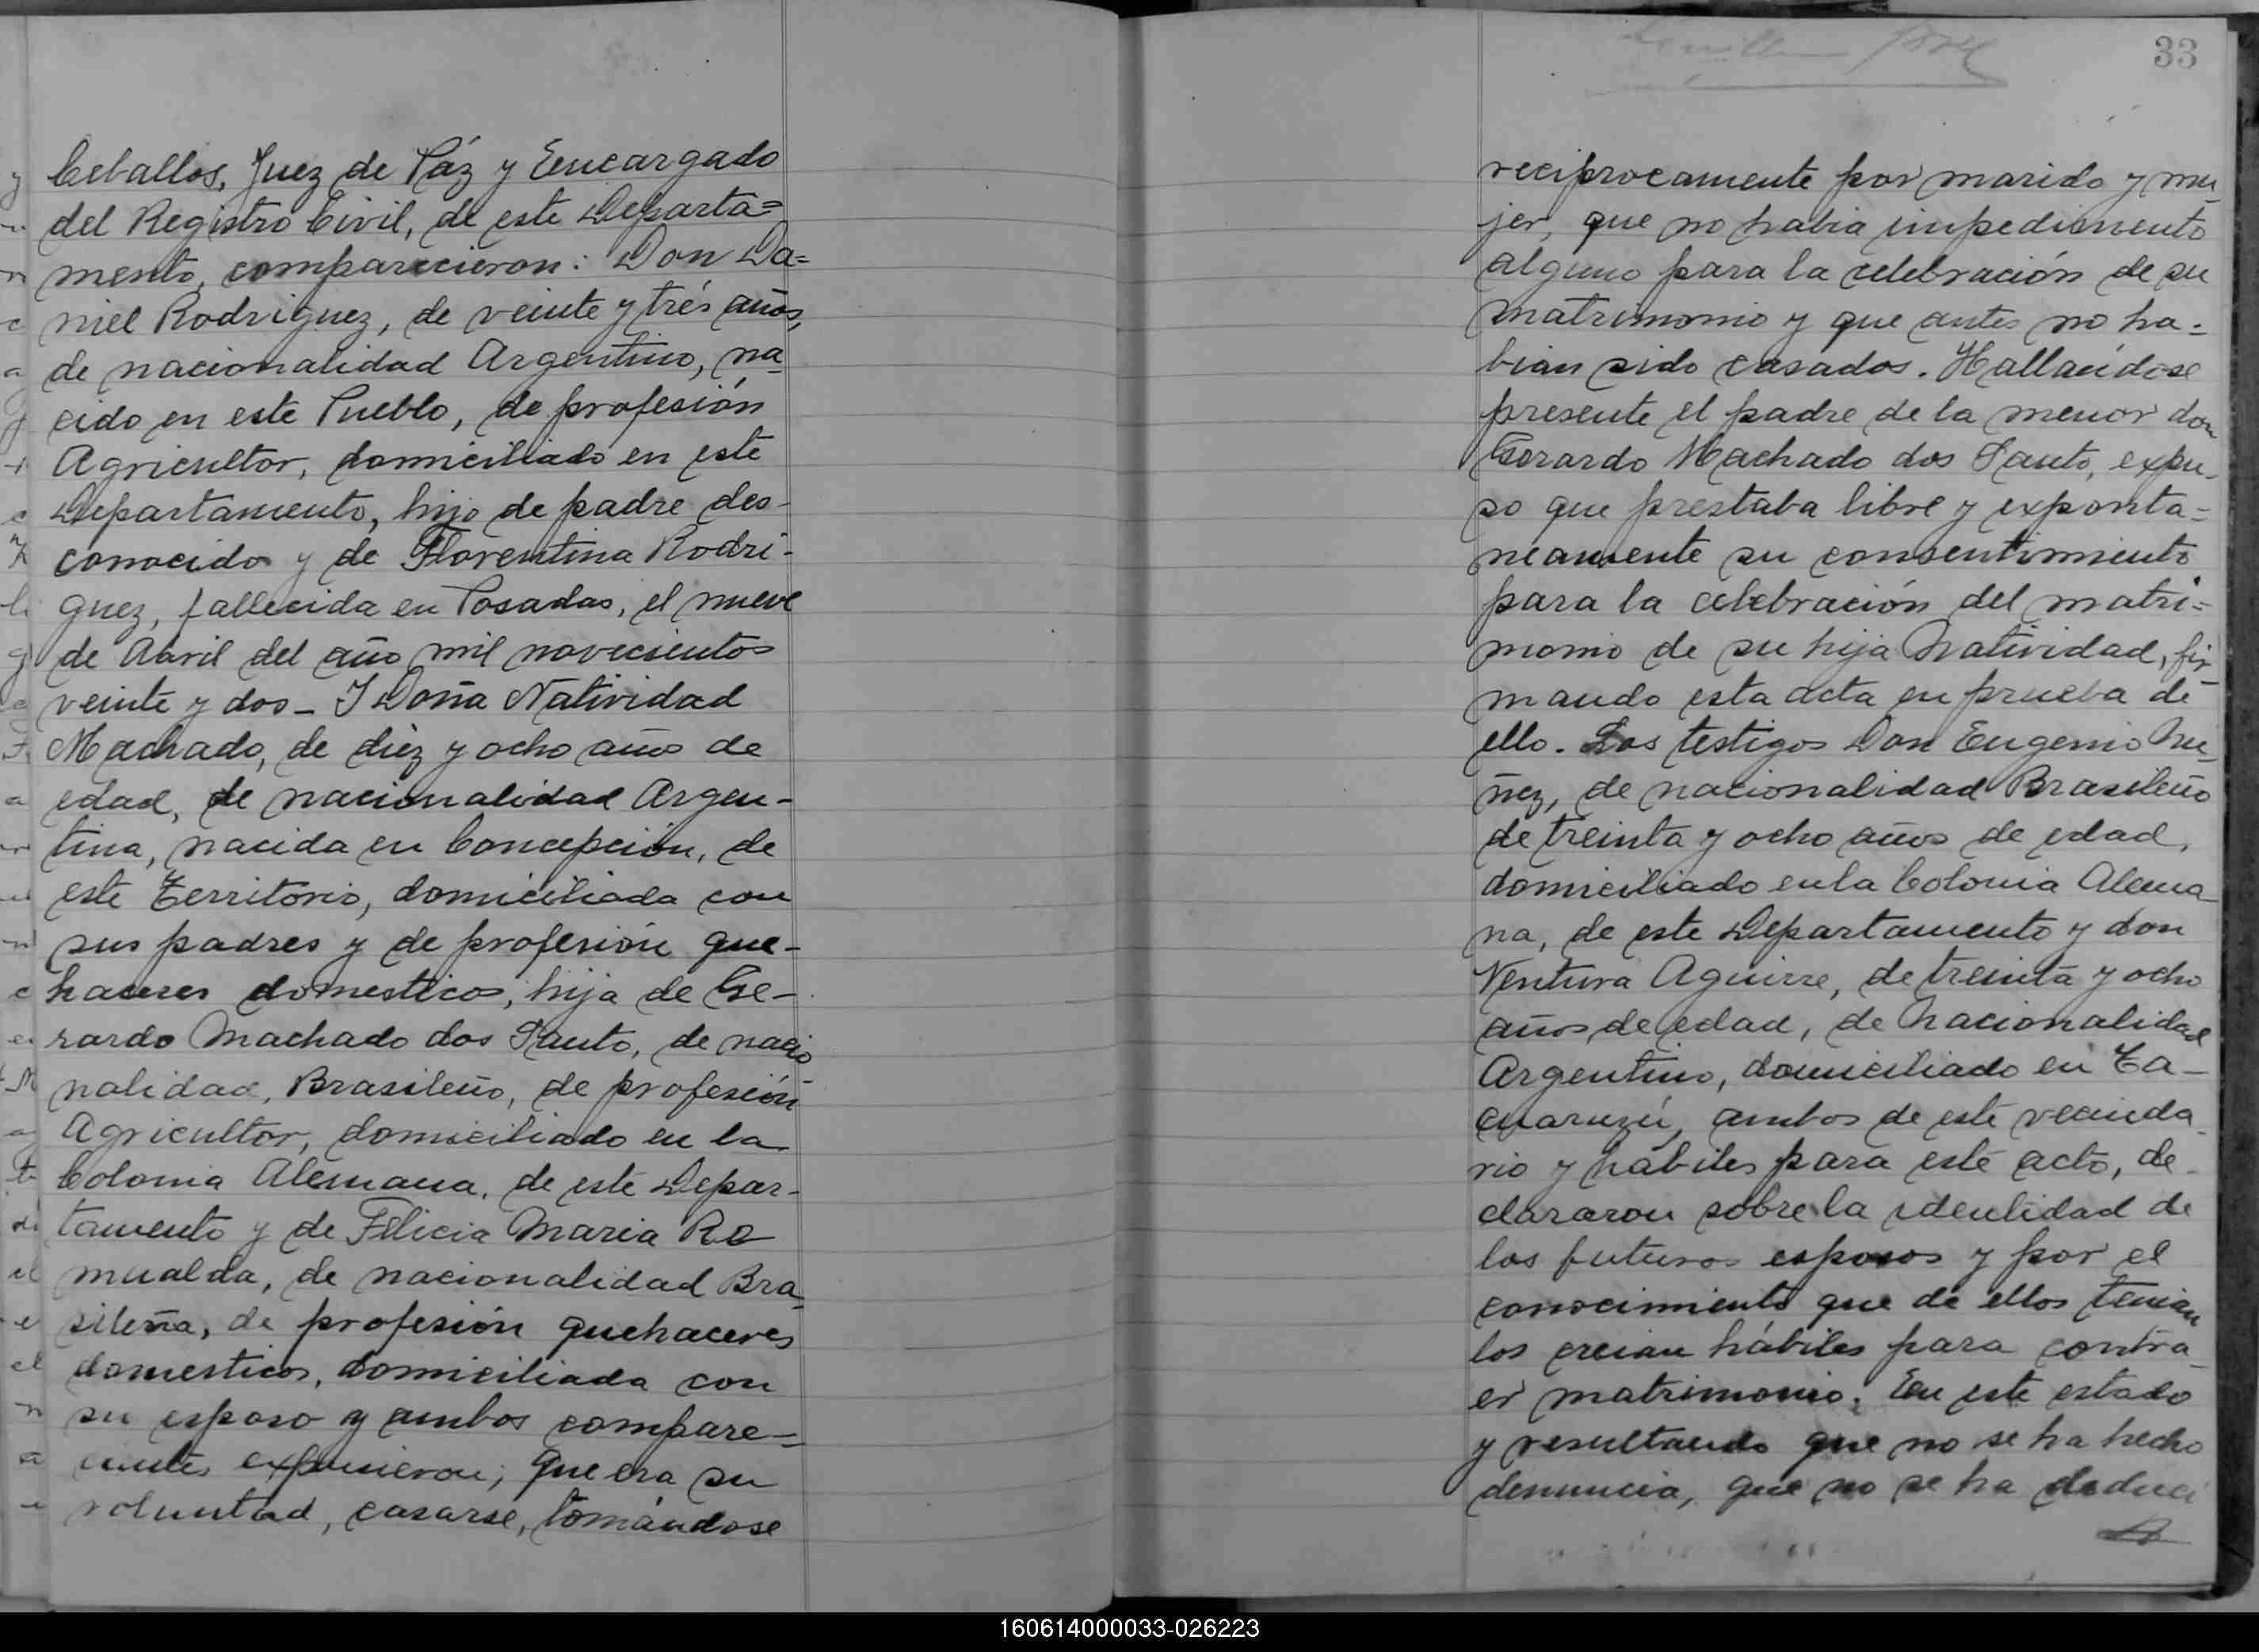 Ceballos, Juez de Páz y Encargado
del Registro Civil, de este Departa=
mento, comparecieron: Don Da=
niel Rodriguez, de veinte y trés años,
de nacionalidad Argentino, na
cido en este Pueblo, de profesión
Agricultor, domiciliado en este
Departamento, hijo de padre des-
conocido y de Florentina Rodri-
guez, fallecida en Posadas, el nueve
de Abril del año mil novecientos
veinte y dos_ I Doña Natividad
Machado, de diez y ocho años de
edad, de nacionalidad Argen-
tina, nacida en Concepción, de
este Territorio, domiciliada con
sus padres y de profesión que-
haceres domesticos, hija de Ge-
rardo Machado dos Santo, de nacio
nalidad, Brasileño, de profesión
Agricultor, domiciliado en la
Colonia Alemana, de este Depar-
tamento y de Felicia Maria Ro
mualda, de nacionalidad Bra
sileña, de profesión quehaceres
domesticos, domiciliada con
su esposo y ambos compare=
cientes expusieron; que era su
voluntad, casarse, tomándose
33
reciprocamente por marido y mu
jer, que no habia impedimento
alguno para la celebración de su
matrimonio y que antes no ha=
bian sido casados. Hallándose
presente el padre de la menor don
Gerardo Machado dos Santo, expu-
so que prestaba libre y exponta=
neamente su consentimiento
para la celebración del matri=
monio de su hija Natividad, fir-
mando esta acta en prueba de
ello. Los testigos Don Eugenio Nu
ñez, de nacionalidad Brasileño
de treinta y ocho años de edad,
domiciliado en la Colonia Alema
na, de este Departamento y don
Ventura Aguirre, de treinta y ocho
años de edad, de nacionalidad
Argentino, domiciliado en Ta-
cuaruzú, ambos de este vecinda
rio y hábiles para este acto, de-
clararon sobre la identidad de
los futuros esposos y por el
conocimiento que de ellos tenian
los creian hábiles para contra
er matrimonio. En este estado
y resultando que no se ha hecho
denuncia, que no se ha deduci
160614000033-026223